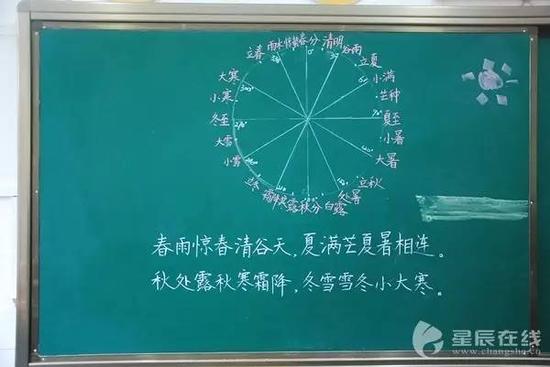 立春 雨水 惊蛰 春分 清明 谷雨
立夏
小满
芒种
夏至
小暑
大暑
立秋
处暑
白露
秋分
寒露
霜降
立冬
小雪
大雪
冬至
小寒
大寒
0°
90°
270°
300°
春雨惊春清谷天,夏满芒夏暑相连。
秋处露秋寒霜降,冬雪雪冬小大寒。
星辰在线
www.changsha.cn